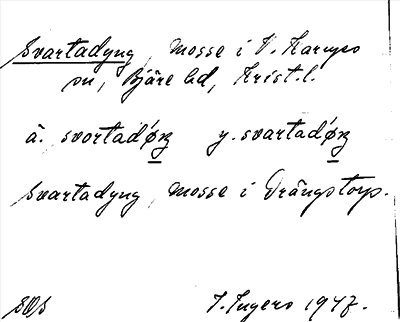 Svartadyng, mosse i V. Karups
sn, Bjäre hd, Krist. l.
ä. svortadøŋ y. svartadøŋ
Svartadyng, mosse i Drängstorp.
SOS I. Ingers 1947.